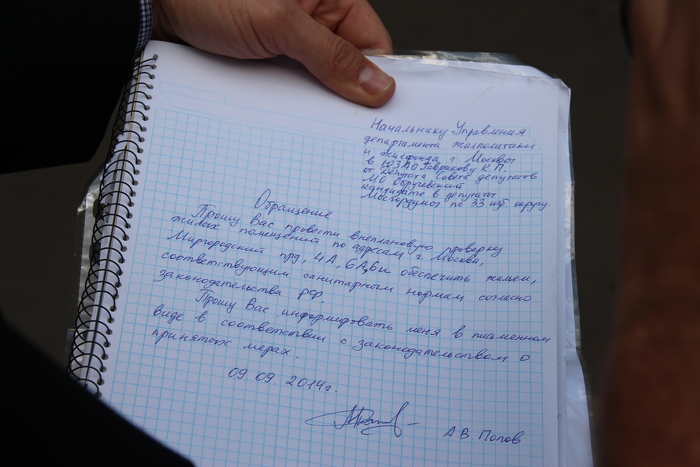 Начальнику Управления
департамента жилполитики
и жилфонда г. Москвы
в ЮЗАО Гаврикову К.П.
от депутата Совета депутатов
МО Обручевский
кандидата в депутаты
Мосгордумы по 33 изб. округу
Обращение
Прошу Вас провести внеплановую проверку
жилых помещений по адресам г. Москва,
Миргородский прд. 4А, 6А, обеспечить жильем,
соответствующим санитарным нормам согласно
законодательства РФ.
Прошу Вас информировать меня в письменном
виде в соответствии с законодательством о
принятых мерах.
09.09.2014г.
А В Попов